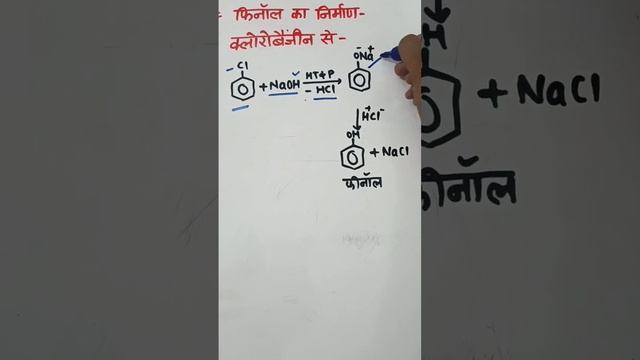 फिनॉल का निर्माण-
क्लोरोबैंजीन से-
Cl
+ NaOH HT&P - HCl
O⁻Na⁺
H⁺Cl⁻
OH
+ NaCl
फीनॉल
+ NaCl
फीनॉल